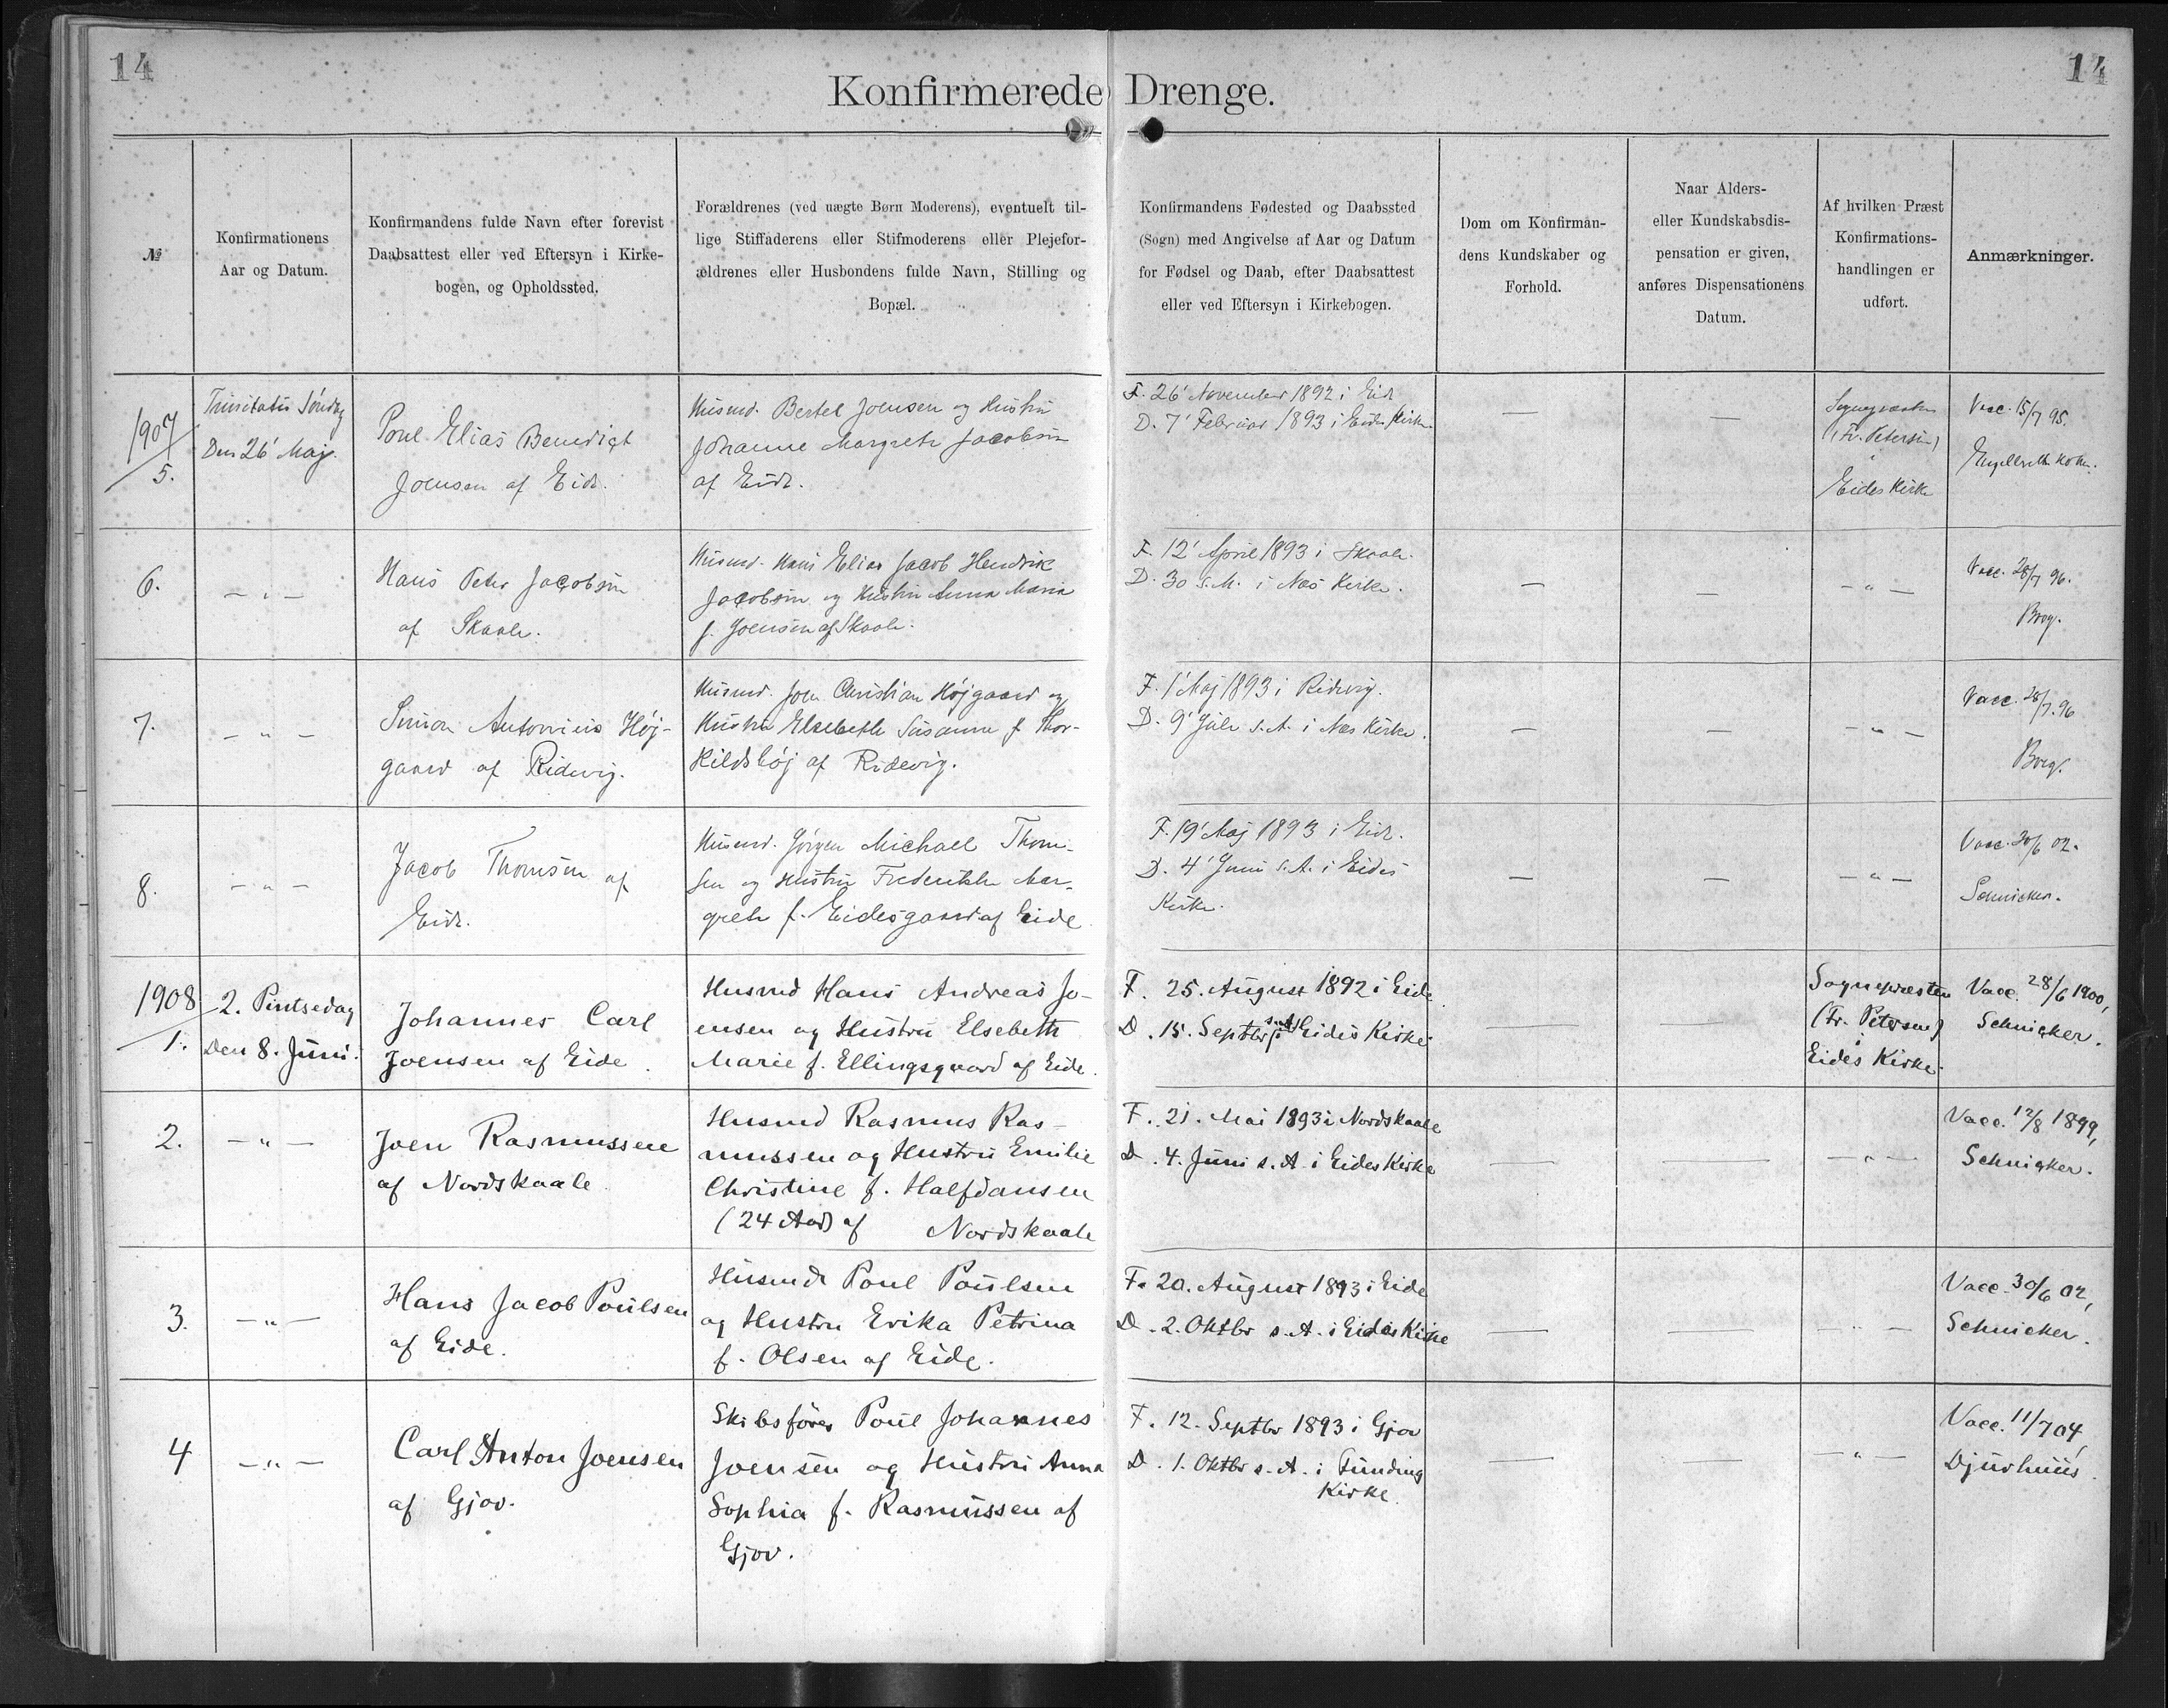 14
14
Konfirmerede Drenge.
№
Konfirmationens
Aar og Datum.
Konfirmandens fulde Navn efter forevist
Daabsattest eller ved Eftersyn i Kirke-
bogen, og Opholdssted.
Forældrenes (ved uægte Børn Moderens), eventuelt til-
lige Stiffaderens eller Stifmoderens eller Plejefor-
ældrenes eller Husbondens fulde Navn, Stilling og
Bopæl.
Konfirmandens Fødested og Daabssted
(Sogn) med Angivelse af Aar og Datum
for Fødsel og Daab, efter Daabsattest
eller ved Eftersyn i Kirkebogen.
Dom om Konfirman-
dens Kundskaber og
Forhold.
Naar Alders-
eller Kundskabsdis-
pensation er given,
anføres Dispensationens
Datum.
Af hvilken Præst
Konfirmations-
handlingen er
udført.
Anmærkninger.
1907
5.
Trinitatis Søndag
Den 26' Maj.
Poul Elias Benedigt
Joensen af Eide.
Husmd. Bertel Joensen og Hustru
Johanne Margrete Jacobsen
af Eide.
F. 26' November 1892 i Eide
D. 7' Februar 1893 i Eides Kirke.
—
—
Sognepræsten
(Fr. Petersen)
i
Eides Kirke
Vacc. 15/7 95.
6.
— " —
Hans Peter Jacobsen
af Skaale.
Husmd. Hans Elias Jacob Hendrik
Jacobsen og Hustru Anna Maria
f. Joensen af Skaale.
F. 12' April 1893 i Skaale.
D. 30 s. M. i Næs Kirke.
—
—
— " —
Vacc. 28/7 96.
7.
— " —
Simon Antonius Høj-
gaard af Ridevig.
Husmd. Joen Christian Højgaard og
Hustru Elsebeth Susanne f. Thor-
kildshøj af Ridevig.
F. 1' Maj 1893 i Ridevig.
D. 9' Juli s. A. i Næs Kirke.
—
—
— " —
Vacc. 28/7. 96
8.
— " —
Jacob Thomsen af
Eide.
Husmd. Jørgen Michael Thom-
sen og Hustru Frederikke Mar-
grete f. Eidesgaard af Eide.
F. 19' Maj 1893 i Eide.
D. 4' Juni s. A. i Eides
Kirke.
—
—
— " —
Vacc. 30/6 02.
Schnicker.
1908
1.
2. Pintsedag
Den 8. Juni.
Johannes Carl
Joensen af Eide.
Husmd Hans Andreas Jo-
ensen og Hustru Elsebeth
Marie f. Ellingsgaard af Eide.
F. 25. August 1892 i Eide.
D. 15. Septbr s. A. i Eides Kirke.
—
—
Sognepræsten
(Fr. Petersen)
i
Eides Kirke.
Vacc. 28/6 1900,
Schnicker.
2.
— " —
Joen Rasmussen
af Nordskaale.
Husmd Rasmus Ras-
mussen og Hustru Emilie
Christine f. Halfdansen
(24 Aar) af Nordskaale
F. 21. Mai 1893 i Nordskaale
D. 4. Juni s. A. i Eides Kirke
—
—
— " —
Vacc. 12/8 1899,
Schnicker.
3.
— " —
Hans Jacob Poulsen
af Eide.
Husmd Poul Poulsen
og Hustru Erika Petrina
f. Olsen af Eide.
F. 20. August 1893 i Eide
D. 2. Oktbr s. A. i Eides Kirke
—
—
— " —
Vacc. 30/6 02,
Schnicker.
4
— " —
Carl Anton Joensen
af Gjov.
Skibsfører Poul Johannes
Joensen og Hustru Anna
Sophia f. Rasmussen af
Gjov.
F. 12. Septbr 1893 i Gjov
D. 1. Oktbr s. A. i Funding
Kirke.
—
—
— " —
Vacc. 11/7 04,
Djurhuus.